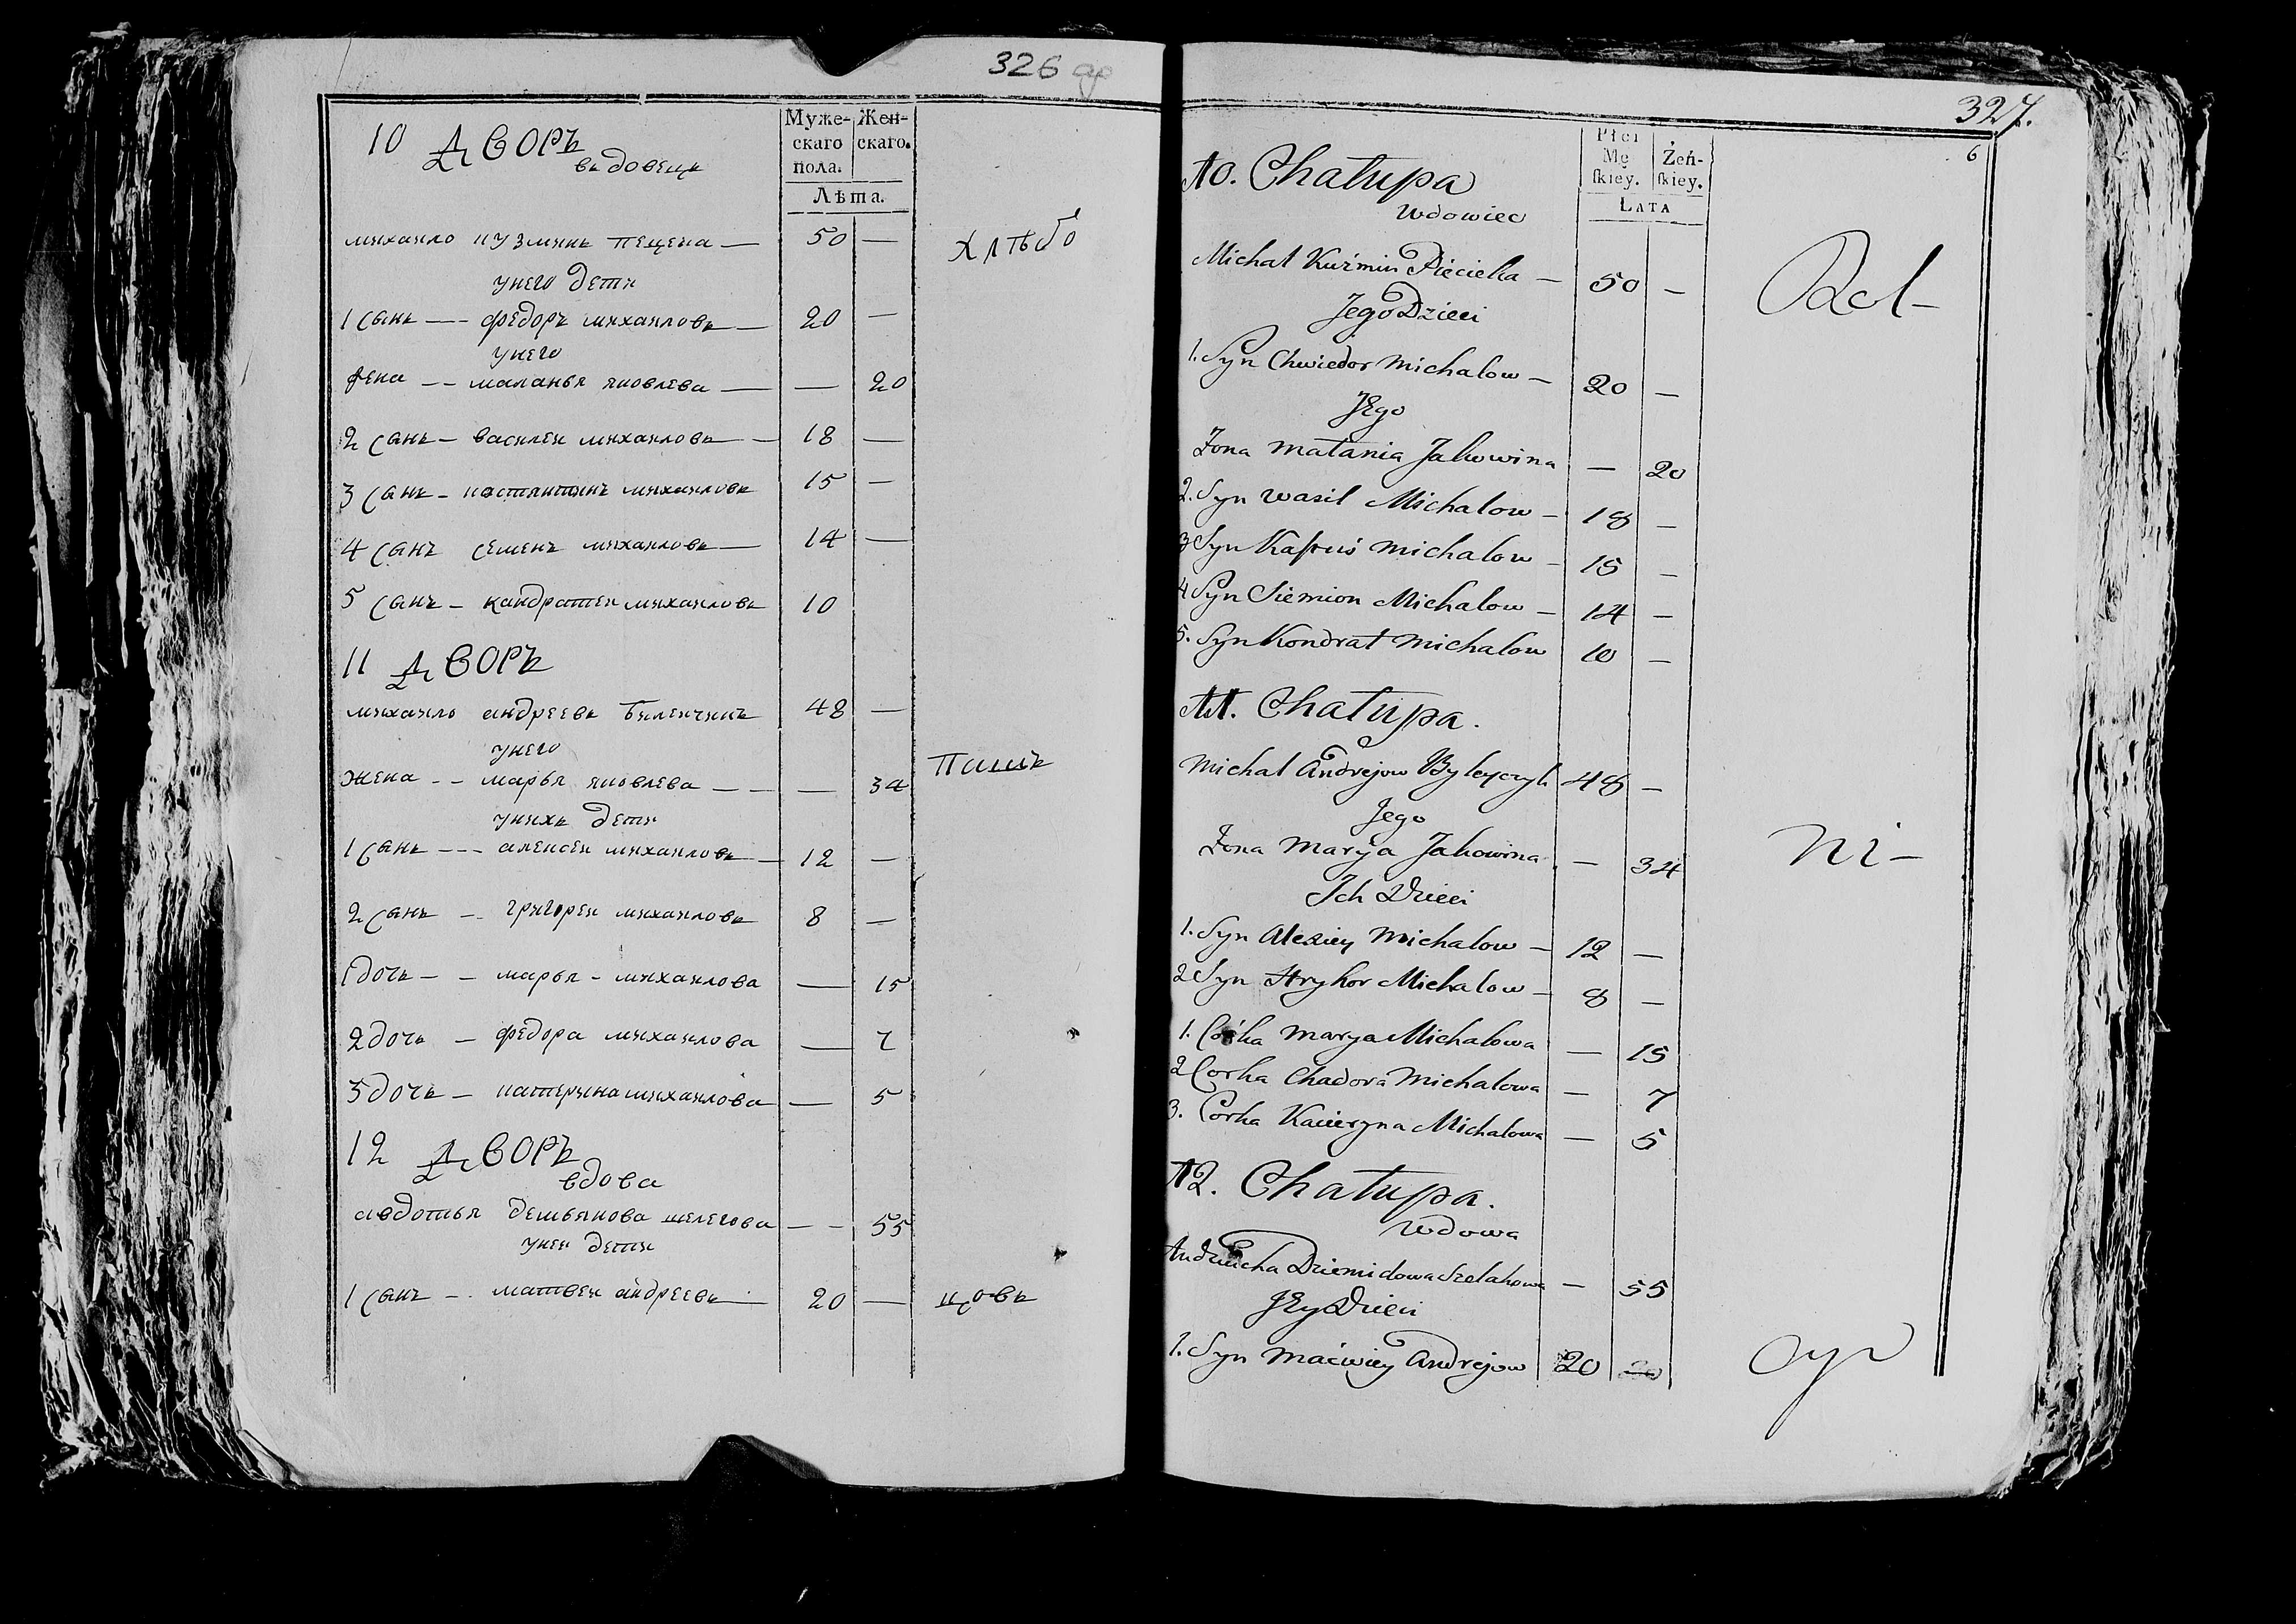 326
10 Дворъ
вдовецъ
Муже- Жен-
скаго скаго.
пола.
Лѣта.
михаило кузминъ пецела — 50 —
хлѣбо
унего дети
1 сынъ — федоръ михаиловъ — 20 —
унего
жена — маланья яковлева — — 20
2 сынъ — василеи михаиловъ — 18 —
3 сынъ — костянтинъ михаиловъ 15 —
4 сынъ семенъ михаиловъ — 14 —
5 сынъ — кандратеи михаиловъ 10
11 Дворъ
михаило андреевъ билеичикъ 48 —
унего
жена — марья яковлева — — 34
пашъ
унихъ дети
1 сынъ — алексеи михаиловъ — 12 —
2 сынъ — григореи михаиловъ 8 —
1 дочь — марья — михаилова — 15
2 дочь — федора михаилова — 7
3 дочь — катерина михаилова — 5
12 Дворъ
вдова
авдотья демьянова шелегова — 55
унеи дети
1 сынъ — матвеи андреевъ — 20 —
цовъ
327.
6
10. Chałupa
Wdowiec
Płci
Mę Żeń-
ſkiey. ſkiey.
Lata
Michał Kuźmin Pieciela — 50 —
Rol-
Jego Dzieci
1. Syn Chwiedor Michałow — 20 —
Jego
Żona Małania Jakowina — 20
2. Syn Wasil Michałow — 18 —
3 Syn Kastuś Michałow — 15 —
4 Syn Siemion Michałow — 14 —
5. Syn Kondrat Michałow 10 —
11. Chałupa.
Michał Andrejow Byleyczyk 48 —
Jego
Żona Marya Jakowina — 34
ni-
Ich Dzieci
1. Syn Alexiey Michałow — 12 —
2 Syn Hryhor Michałow — 8 —
1. Córka Marya Michałowa — 15
2 Corka Chadora Michałowa — 7
3. Corka Kacieryna Michałowa — 5
12. Chałupa.
Wdowa
Dziemidowa Szelahowa — 55
Jey Dzieci
1. Syn Maćwiey Andrejow 20
cy